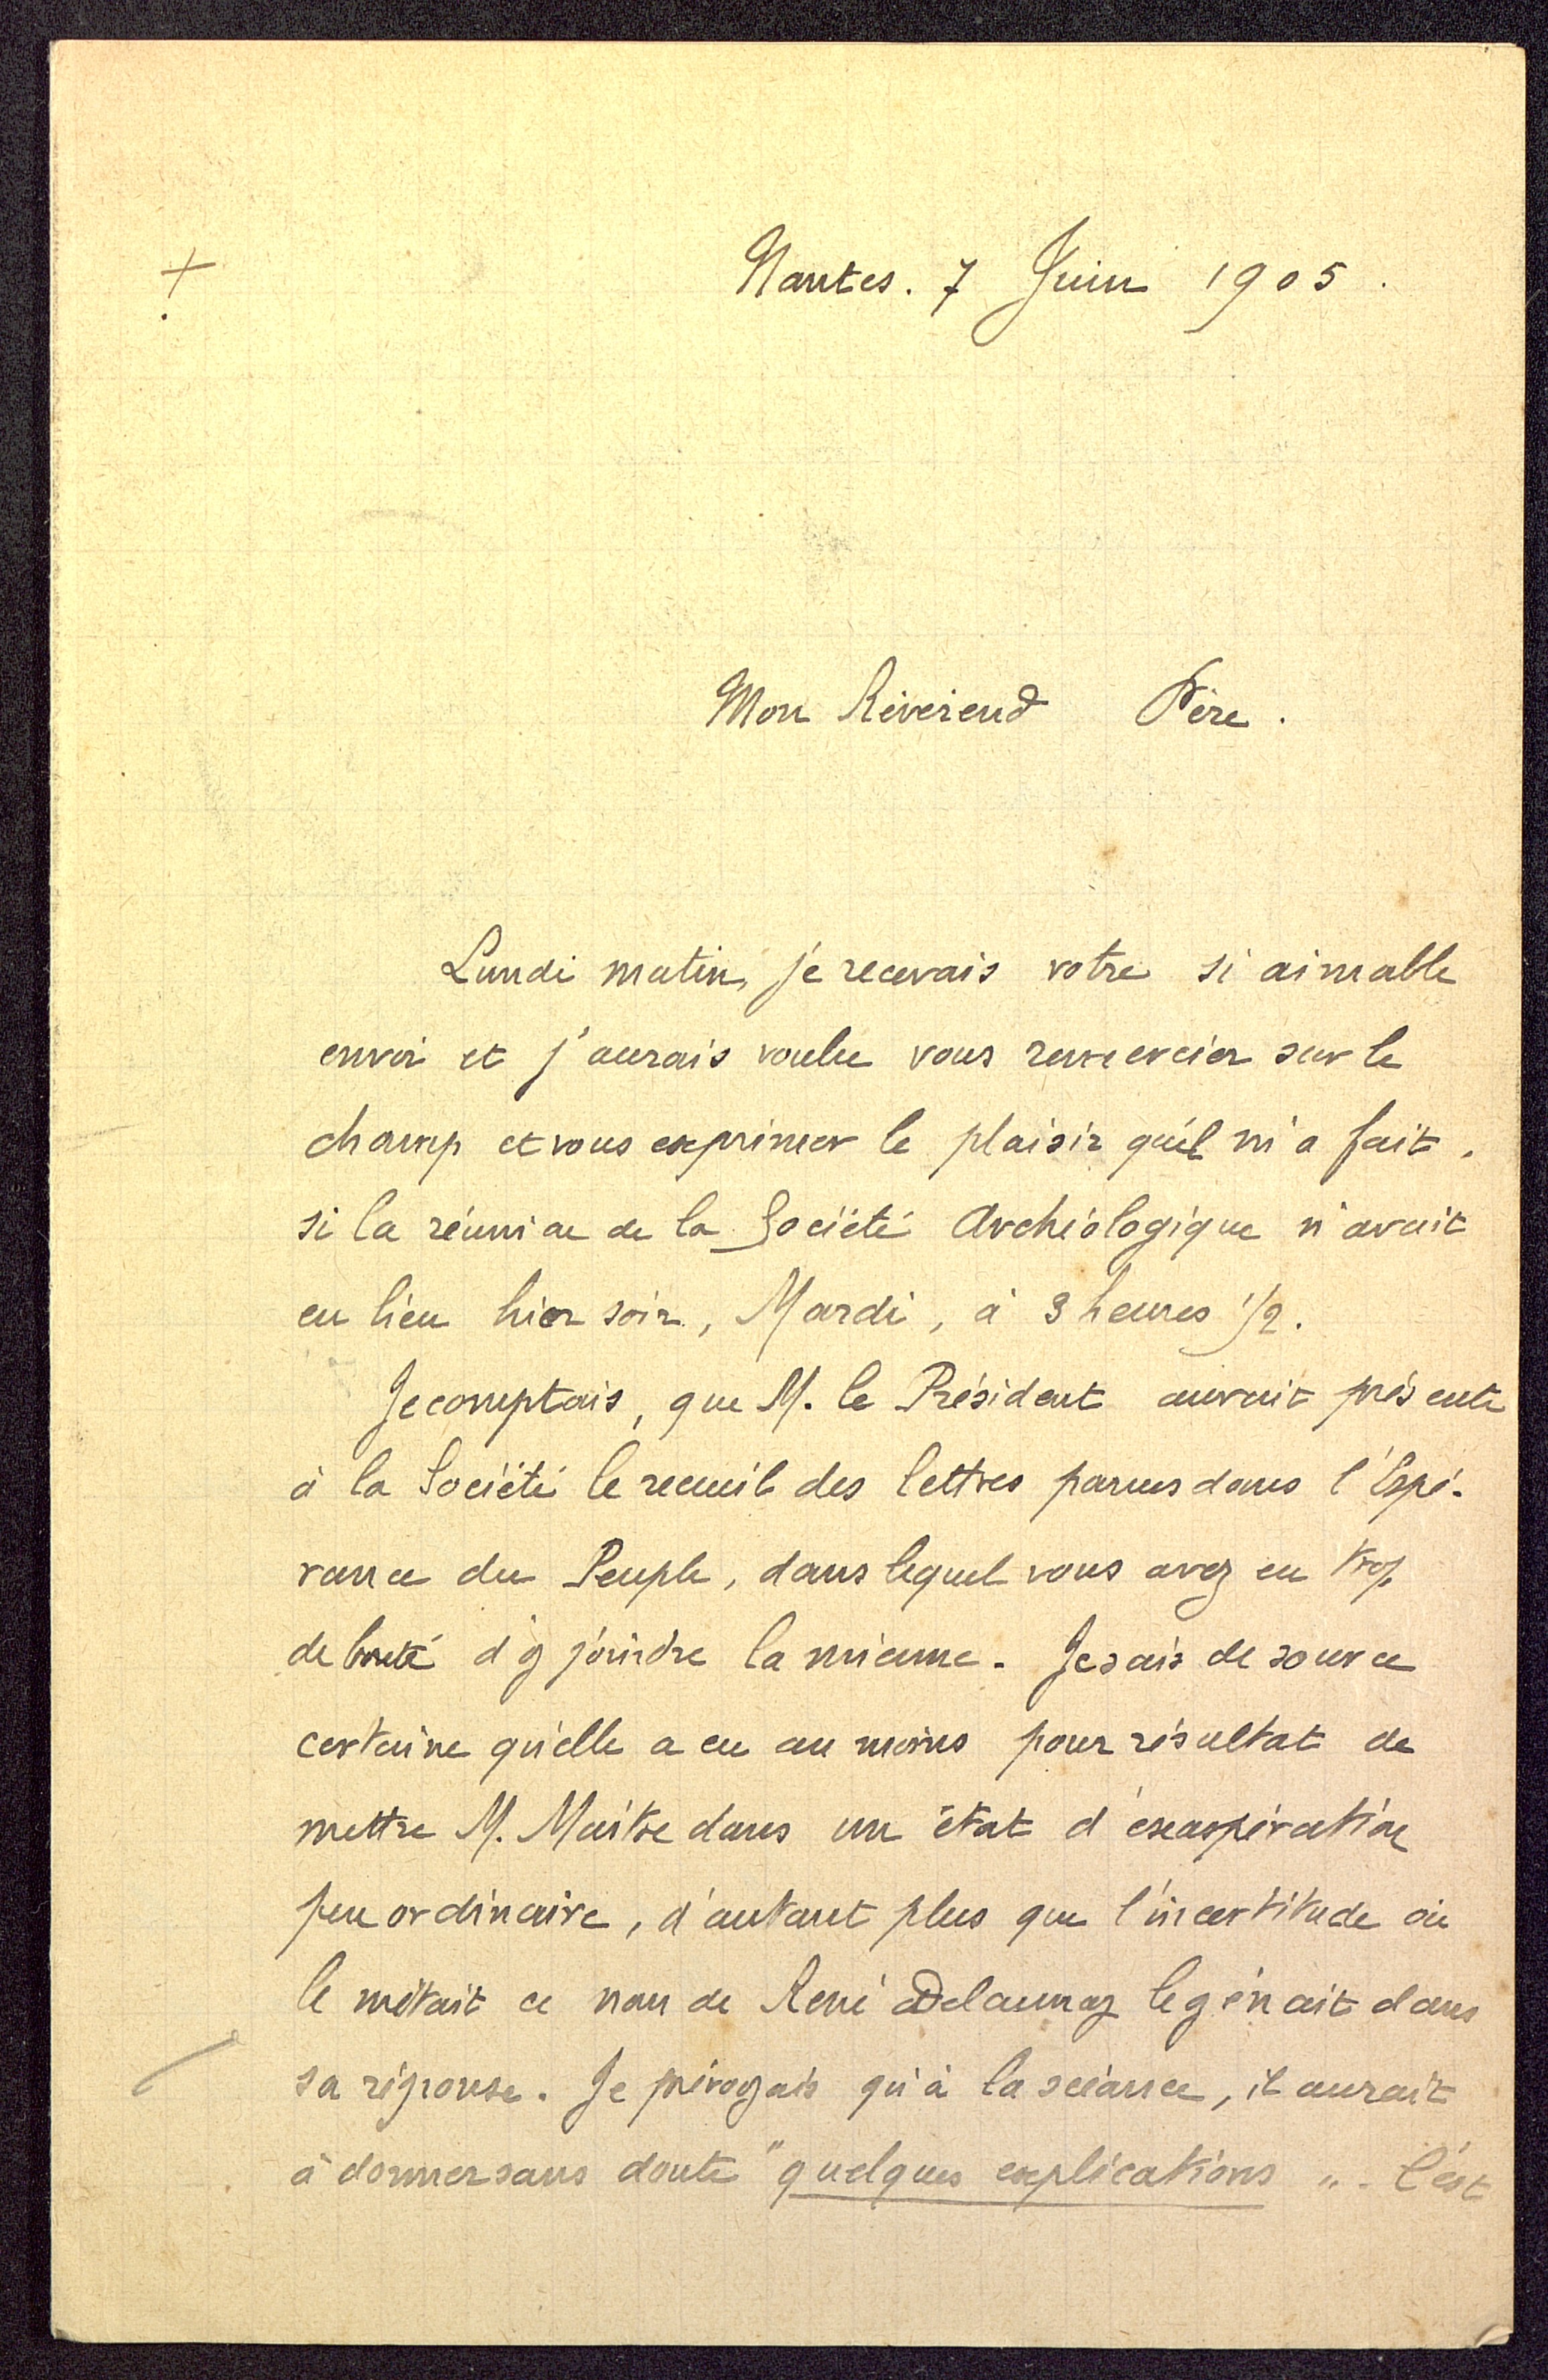 Nantes. 7 Juin 1905.
Mon Révérend Père.
Lundi matin, je recevais votre si aimable
envoi et j'aurais voulu vous remercier sur le
champ et vous exprimer le plaisir qu'il m'a fait,
si la réunion de la Société Archéologique n'avait
eu lieu hier soir, Mardi, à 3 heures 1/2.
Je comptais, que M. le Président aurait présenté
à la Société le recueil des lettres parues dans l'Espé-
rance du Peuple, dans lequel vous avez eu trop
de bonté d'y joindre la mienne. Je sais de source
certaine qu'elle a eu au moins pour résultat de
mettre M. Maitre dans un état d'exaspération
peu ordinaire, d'autant plus que l'incertitude où
le mettait ce nom de René Delaunay le gênait dans
sa réponse. Je prévoyais qu'à la séance, il aurait
à donner sans doute "quelques explications". C'est